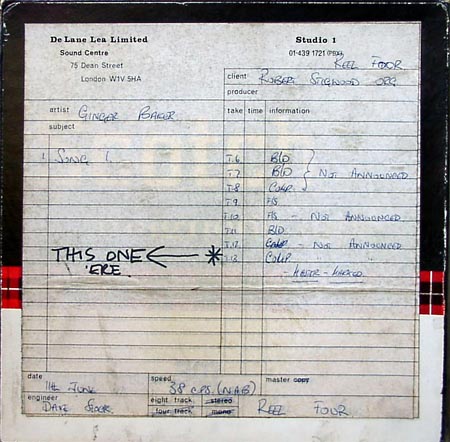 De Lane Lea Limited
Sound Centre
75 Dean Street
London W1V 5HA
Studio 1
01-439 1721 (PBX)
REEL FOUR
client ROBERT STIGWOOD ORG
producer
artist GINGER BAKER
take time information
subject
1 SONG 1. T.6 B/D
T.7 B/D NOT ANNOUNCED
T.8 COMP
T.9 F/S
T.10 F/S - NOT ANNOUNCED
T.11 B/D
T.12 COMP - NOT ANNOUNCED
THIS ONE * T.13 COMP " "
'ERE. - MASTER - MARKED
date 11th JUNE
speed 38 CPS. (NAB)
master copy
engineer DAVE
eight track stereo
four track mono
REEL FOUR